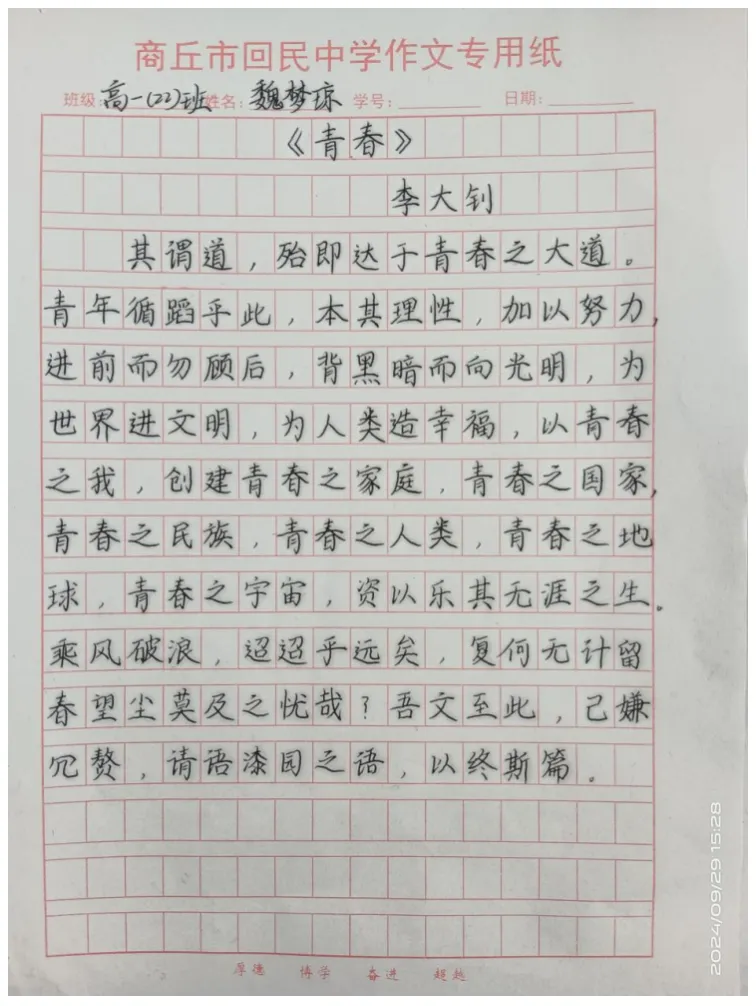 商丘市回民中学作文专用纸
班级：高一(22)班 姓名：魏梦琼 学号： 日期：
《青春》
李大钊
其谓道，殆即达于青春之大道。
青年循蹈乎此，本其理性，加以努力，
进前而勿顾后，背黑暗而向光明，为
世界进文明，为人类造幸福，以青春
之我，创建青春之家庭，青春之国家，
青春之民族，青春之人类，青春之地
球，青春之宇宙，资以乐其无涯之生。
乘风破浪，迢迢乎远矣，复何无计留
春望尘莫及之忧哉？吾文至此，己嫌
冗赘，请语漆园之语，以终斯篇。
厚德 博学 奋进 超越
2024/09/29 15:28